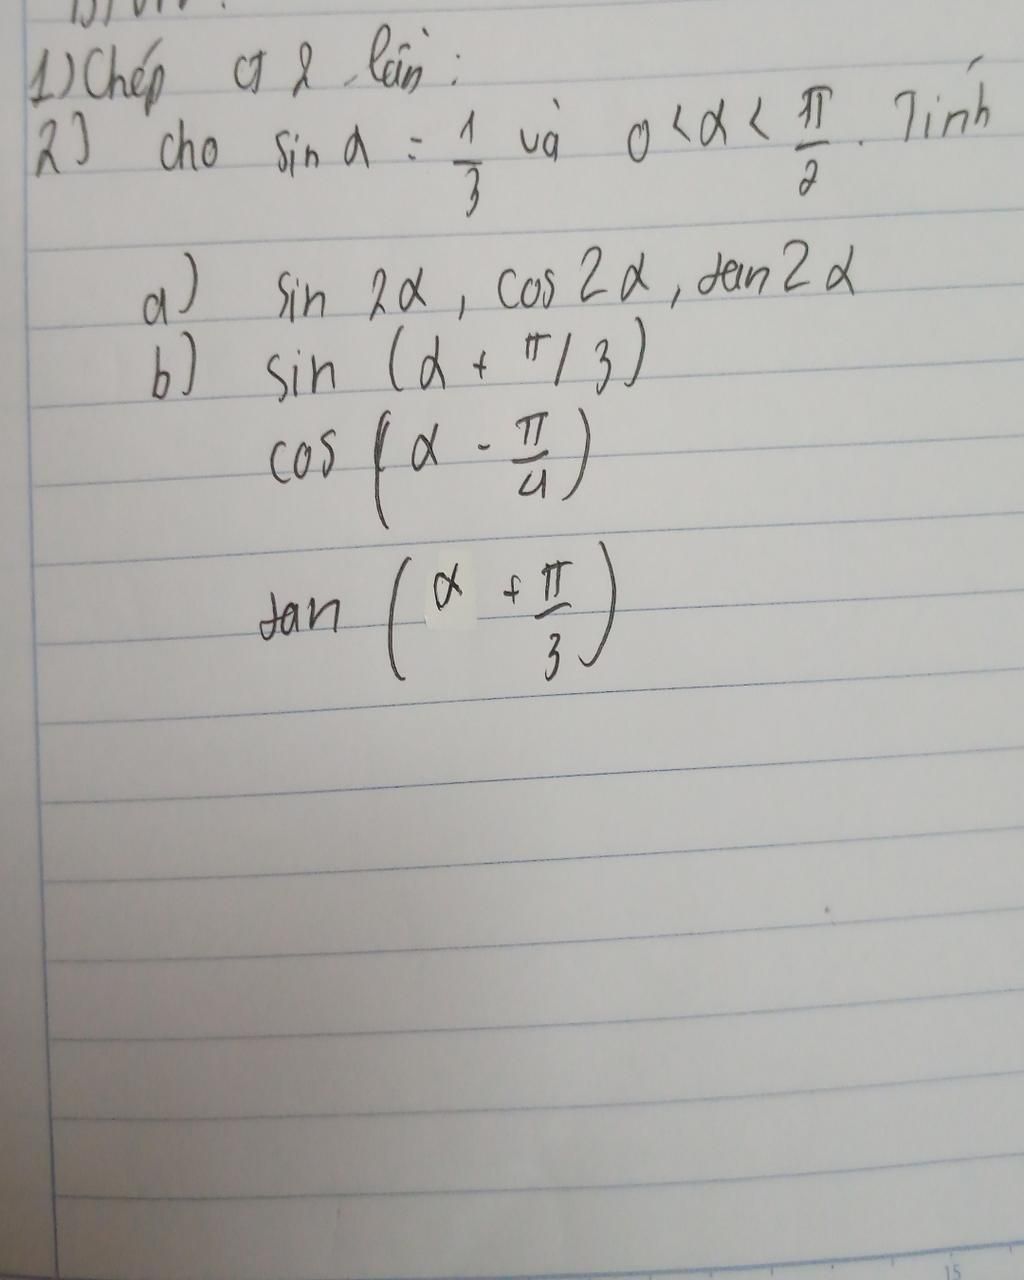 1) Chép CT 2 lần:
2) cho sin α = 1/3 và 0 < α < π/2. Tính
a) sin 2α, cos 2α, tan 2α
b) sin (α + π/3)
cos (α - π/4)
tan (α + π/3)
15